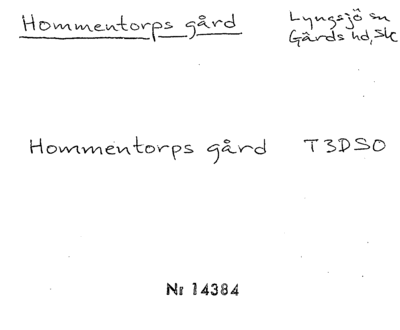 Hommentorps gård
Lyngsjö sn
Gärds hd, Sk
Hommentorps gård T3DSO
Nr 14384